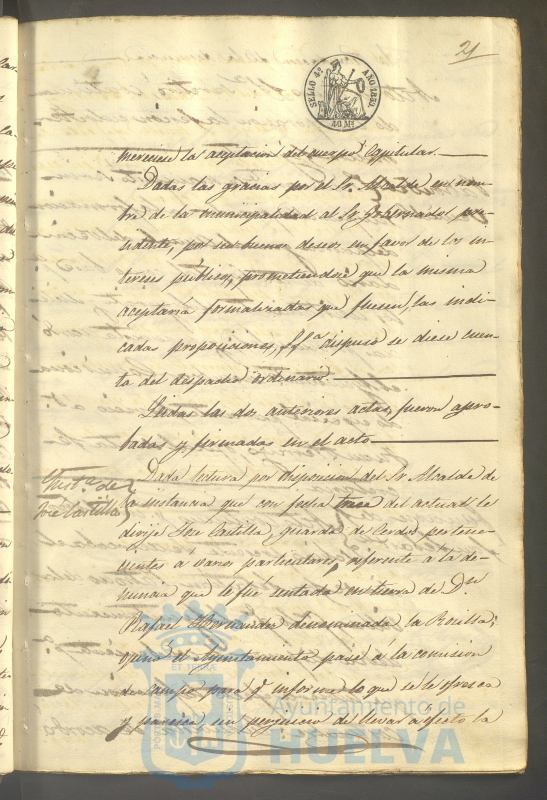 21
SELLO 4º AÑO 1851.
40 Ms.
mereciese la aceptacion del cuerpo Capitular.
Dadas las gracias por el Sr. Alcalde en nom-
bre de la municipalidad al Sr. Gobernador pre-
sidente, por sus buenos deseos en favor de los in-
tereses públicos, prometiendose que la misma
aceptaria formalizadas que fuesen, las indi-
cadas proposiciones, S.Sª. dispuso se diese cuen-
ta del despacho ordinario.
Leidas las dos anteriores actas, fueron apro-
badas y firmadas en el acto
Instª. de
José Castilla
Dada lectura por disposicion del Sr. Alcalde de
la instancia que con fecha trece del actual le
dirije José Castilla, guarda de Cerdos pertene-
cientes á varios particulares, referente á la de-
nuncia que le fué sentada en tierra de Dn.
Rafael Hernandez denominada la Rosilla;
opina el Ayuntamiento pase á la comision
de campo para qe. informe lo que se le ofresca
y paresca, sin perjuicio de llevar á efecto la
Ayuntamiento de
HUELVA